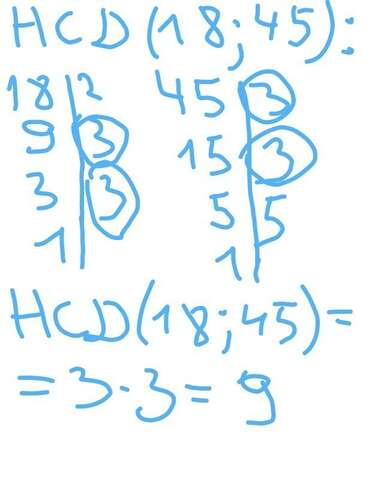 HCD(18;45):
18 | 2 45 | 3
9 | 3 15 | 3
3 | 3 5 | 5
1 | 1 |
HCD(18;45)=
=3·3=9